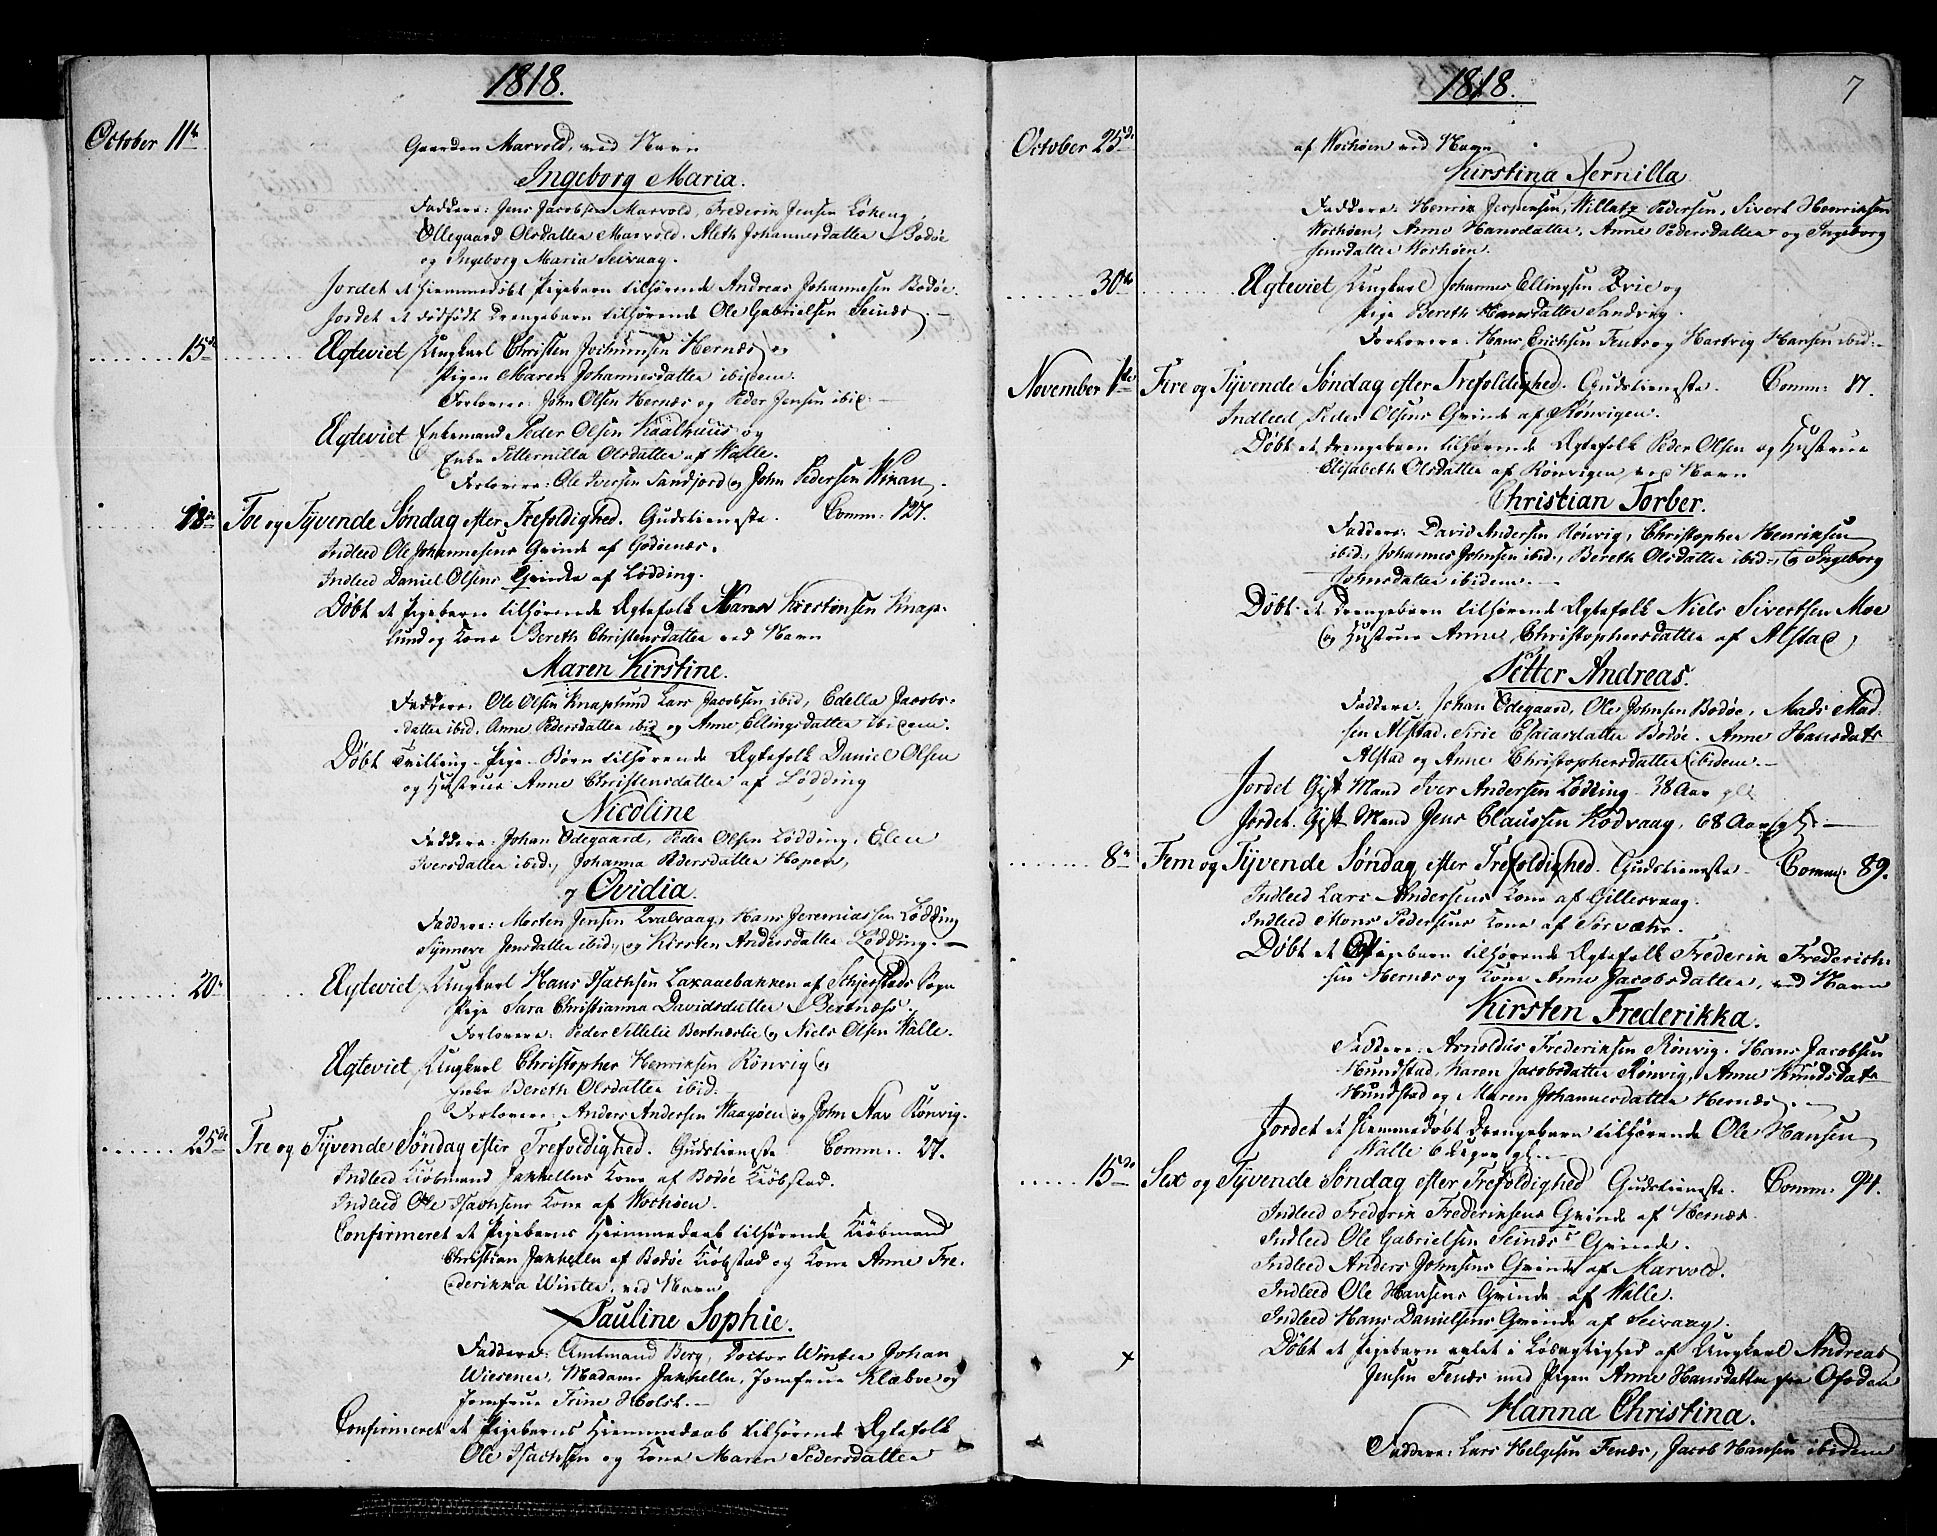 1818.
October 11te
Gaarden Marvold, ved Navn
Ingeborg Maria.
Faddere: Jens Jacobsen Marvold, Frederik Jensen Løkeng,
Ollegaard Olsdatter Marvold. Aleth Johannesdatter Bodøe
og Ingeborg Maria Seivaag.
Jordet et Hiemmedøbt Pigebarn tilhørende Andreas Johannesen Bodøe.
Jordet et dødfødt Drengebarn tilhørende Ole Gabrielsen Seinæs.
15de Egteviet Ungkarl Christen Jochumsen Hernæs og
Pigen Maren Johannesdatter ibidem.
Forlovere: John Olsen Hernæs og Peder Jensen ibid:
Egteviet Enkemand Peder Olsen Kaalhuus og
Enke Petternilla Olsdatter af Walle.
Forlovere: Ole Iversen Sandjord og John Pedersen Winan.
18de Toe og Tyvende Søndag efter Trefoldighed. Gudstieneste. Comm: 127.
Indleed Ole Johannesens Qvinde af Godøenæs.
Indleed Daniel Olsens Qvinde af Lødding.
Døbt et Pigebarn tilhørende Ægtefolk Kirstensen Knap-
lund og Kone Bereth Christensdatter ved Navn
Maren Kirstine.
Faddere: Ole Olsen Knaplund Lars Jacobsen ibid, Edella Jacobs-
datter ibid. Anne Pedersdatter ibid og Anne Ellingsdatter ibidem.
Døbt Tvilling-Pige-Børn tilhørende Ægtefolk Daniel Olsen
og Hustrue Anne Christensdatter af Lødding
Nicoline
Faddere: Johan Ødegaard, Peder Olsen Lødding, Elen
Iversdatter ibid:, Johanna Pedersdatter Hopen,
og Ovidia.
Faddere: Morten Jensen Qvalvaag, Hans Jeremiassen Lødding
Synneve Jensdatter ibid:, og Kirsten Andersdatter Lødding.
20de Egteviet Ungkarl Hans Isachsen Laxaaebakken af Schjerstads Sogn
Pige Sara Christianna Davidsdatter Bertnæss.
Forlovere: Peder Sellelie Bertnæslie og Niels Olsen Walle.
Egteviet Ungkarl Christopher Henriksen Rønvig og
Enke Bereth Olsdatter ibid.
Forlovere: Anders Andersen Waagøen og John Aav Rønvig.
25de Tre og Tyvende Søndag efter Trefoldighed. Gudstieneste Comm: 27.
Indleed Kiøbmand Jakhellns Kone af Bodøe Kiøbstad.
Indleed Ole Isachsens Kone af Nochøen.
Confirmeret et Pigebarns Hiemmedaab tilhørende Kiøbmand
Christian Jakhelln af Bodøe Kiøbstad og Kone Anne Fre-
derikka Winter, ved Navn
Pauline Sophie.
Faddere: Amtmand Berg, Doctor Winter Johan
Wiesener, Madame Jakhelln, Jomfrue Klæboe og
Jomfrue Trine Holst.
Confirmeret et Pigebarns Hiemmedaab tilhørende Ægtefolk
Ole Isachsen og Kone Maren Pedersdatter
1818.
7
October 25de
af Nochøen ved Navn
Kirstina Pernilla
Faddere: Henrik Jespersen, Willatz Pedersen, Sivert Henriksen
Nochøen, Anne Hansdatter, Anne Pedersdatter og Ingeborg
Jensdatter Nochøen.
30te Egteviet Ungkarl Johannes Ellingsen Evie og
Pige Bereth Hansdatter Sandvig.
Forlovere: Hans Erichsen og Hartvig Hansen ibid:
November 1ste Fire og Tyvende Søndag efter Trefoldighed. Gudstieneste. Comm: 17.
Indleed Peder Olsens Qvinde af Rønvigen.
Døbt et Drengebarn tilhørende Ægtefolk Peder Olsen og Hustrue
Elisabeth Olsdatter af Rønvigen ved Navn
Christian Torber.
Faddere: David Andersen Rønvig, Christopher Henriksen
ibid:, Johannes Johnsen ibid:, Bereth Olsdatter ibid:, og Ingeborg
Johnsdatter ibidem.
Døbt et Drengebarn tilhørende Ægtefolk Niels Sivertsen Moe
og Hustrue Anne Christophersdatter af Alstad,
Petter Andreas.
Faddere: Johan Ødegaard, Ole Johnsen Bodøe, Mads Mad-
sen Alstad, Sirie Esaiasdatter Bodøe. Anne Hansdatr
Alstad og Anne Christophersdatter ibidem.
Jordet Gift Mand Iver Andersen Lødding 38 Aar gl:
Jordet Gift Mand Jens Claussen Kodvaag, 68 Aar gl:
8de Fem og Tyvende Søndag efter Trefoldighed. Gudstieneste Comm: 89.
Indleed Lars Andersens Kone af Gillesvaag.
Indleed Mons Pedersens Kone af Sørvær.
Døbt et Pigebarn tilhørende Ægtefolk Frederik Frederich-
sen Hernæs og Kone Anne Jacobsdatter, ved Navn
Kirsten Frederikka.
Faddere: Arnoldus Frederiksen Rønvig, Hans Jacobsen
Hundstad, Karen Jacobsdatter Rønvig, Anne Knudsdatr
Hundstad og Maren Johannesdatter Hernæs.
Jordet et Hiemmedøbt Drengebarn tilhørende Ole Hansen
Walle 6 Uger gl:
15de Sex og Tyvende Søndag efter Trefoldighed Gudstieneste. Comm: 94.
Indleed Frederik Frederiksens Qvinde af Hernæs.
Indleed Ole Gabrielsen Seinæs's Qvinde.
Indleed Anders Johnsens Qvinde af Marvold.
Indleed Ole Hansens Qvinde af Walle.
Indleed Hans Danielsens Qvinde af Seivaag.
x Døbt et Pigebarn avlet i Løsagtighed af Ungkarl Andreas
Jensen Fenæs med Pigen Anne Hansdatter fra Ofodan
Hanna Christina.
Faddere: Lars Helgesen Fenæs, Jacob Hansen ibidem